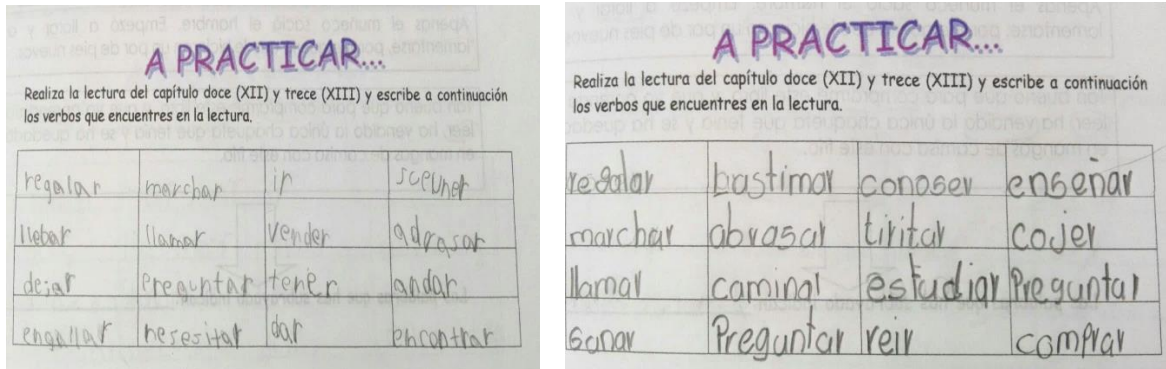 A PRACTICAR...
Realiza la lectura del capítulo doce (XII) y trece (XIII) y escribe a continuación
los verbos que encuentres en la lectura.
regalar marchar ir
llebar llamar vender
dejar preguntar tener andar
nesesitar dar encontrar
A PRACTICAR...
Realiza la lectura del capítulo doce (XII) y trece (XIII) y escribe a continuación
los verbos que encuentres en la lectura.
regalar bastimar conoser enseñar
marchar abrasar tiritar cojer
llamar caminar estudiar Preguntar
ganar Preguntar reir comprar